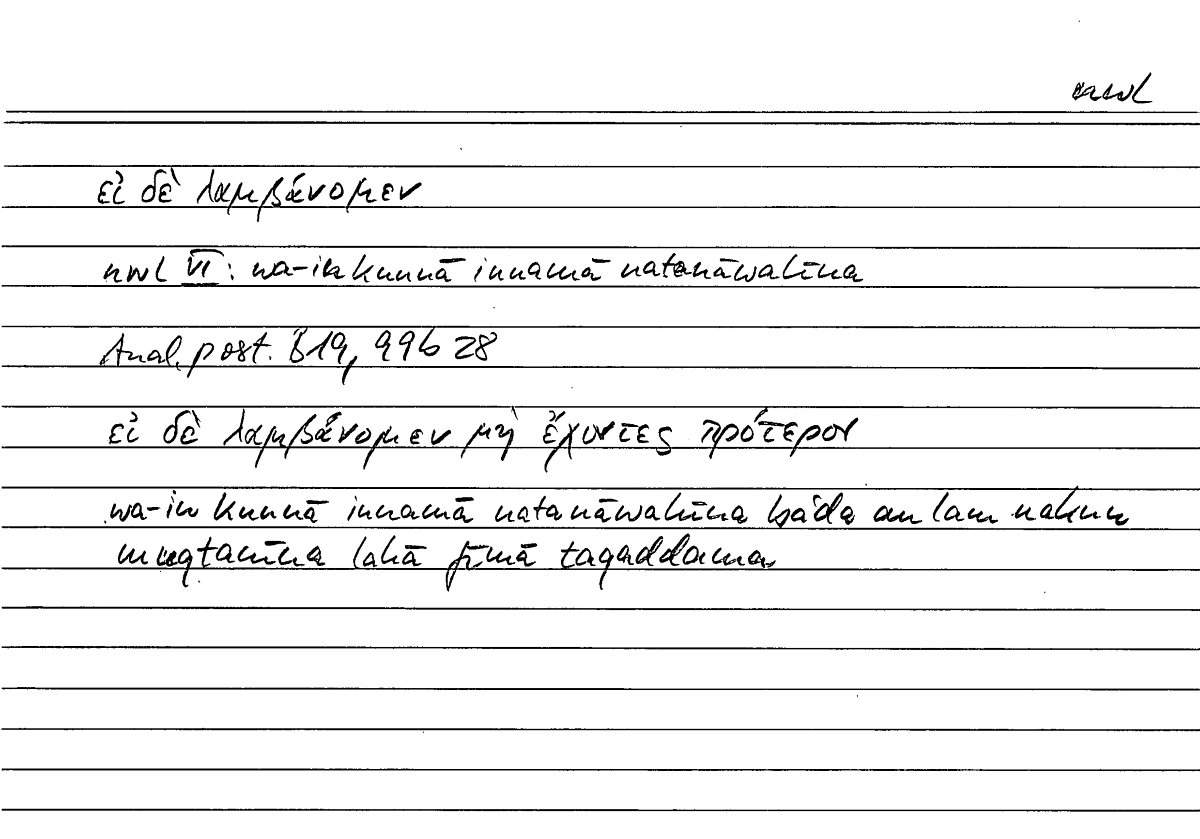 nwl
εἰ δὲ λαμβάνομεν
nwl VI: wa-in kunnā innamā natanāwaluha
Anal. post. B19, 99b 28
εἰ δὲ λαμβάνομεν μὴ ἔχοντες πρότερον
wa-in kunnā innamā natanāwaluha baʿda an lam nakun
muqtanīna lahā fīmā taqaddama